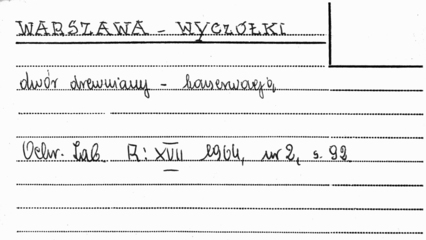 WARSZAWA - WYCZÓŁKI
dwór drewniany - konserwacja
Ochr. Zab. R: XVII 1964, nr 2, s. 92